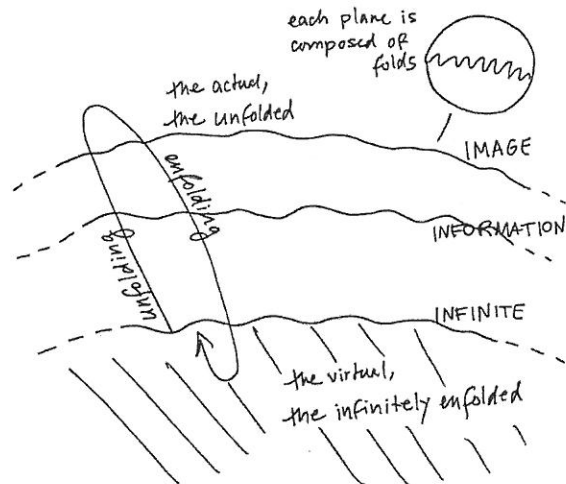 each plane is
composed of
folds
the actual,
the unfolded
IMAGE
enfolding
INFORMATION
unfolding
INFINITE
the virtual,
the infinitely enfolded